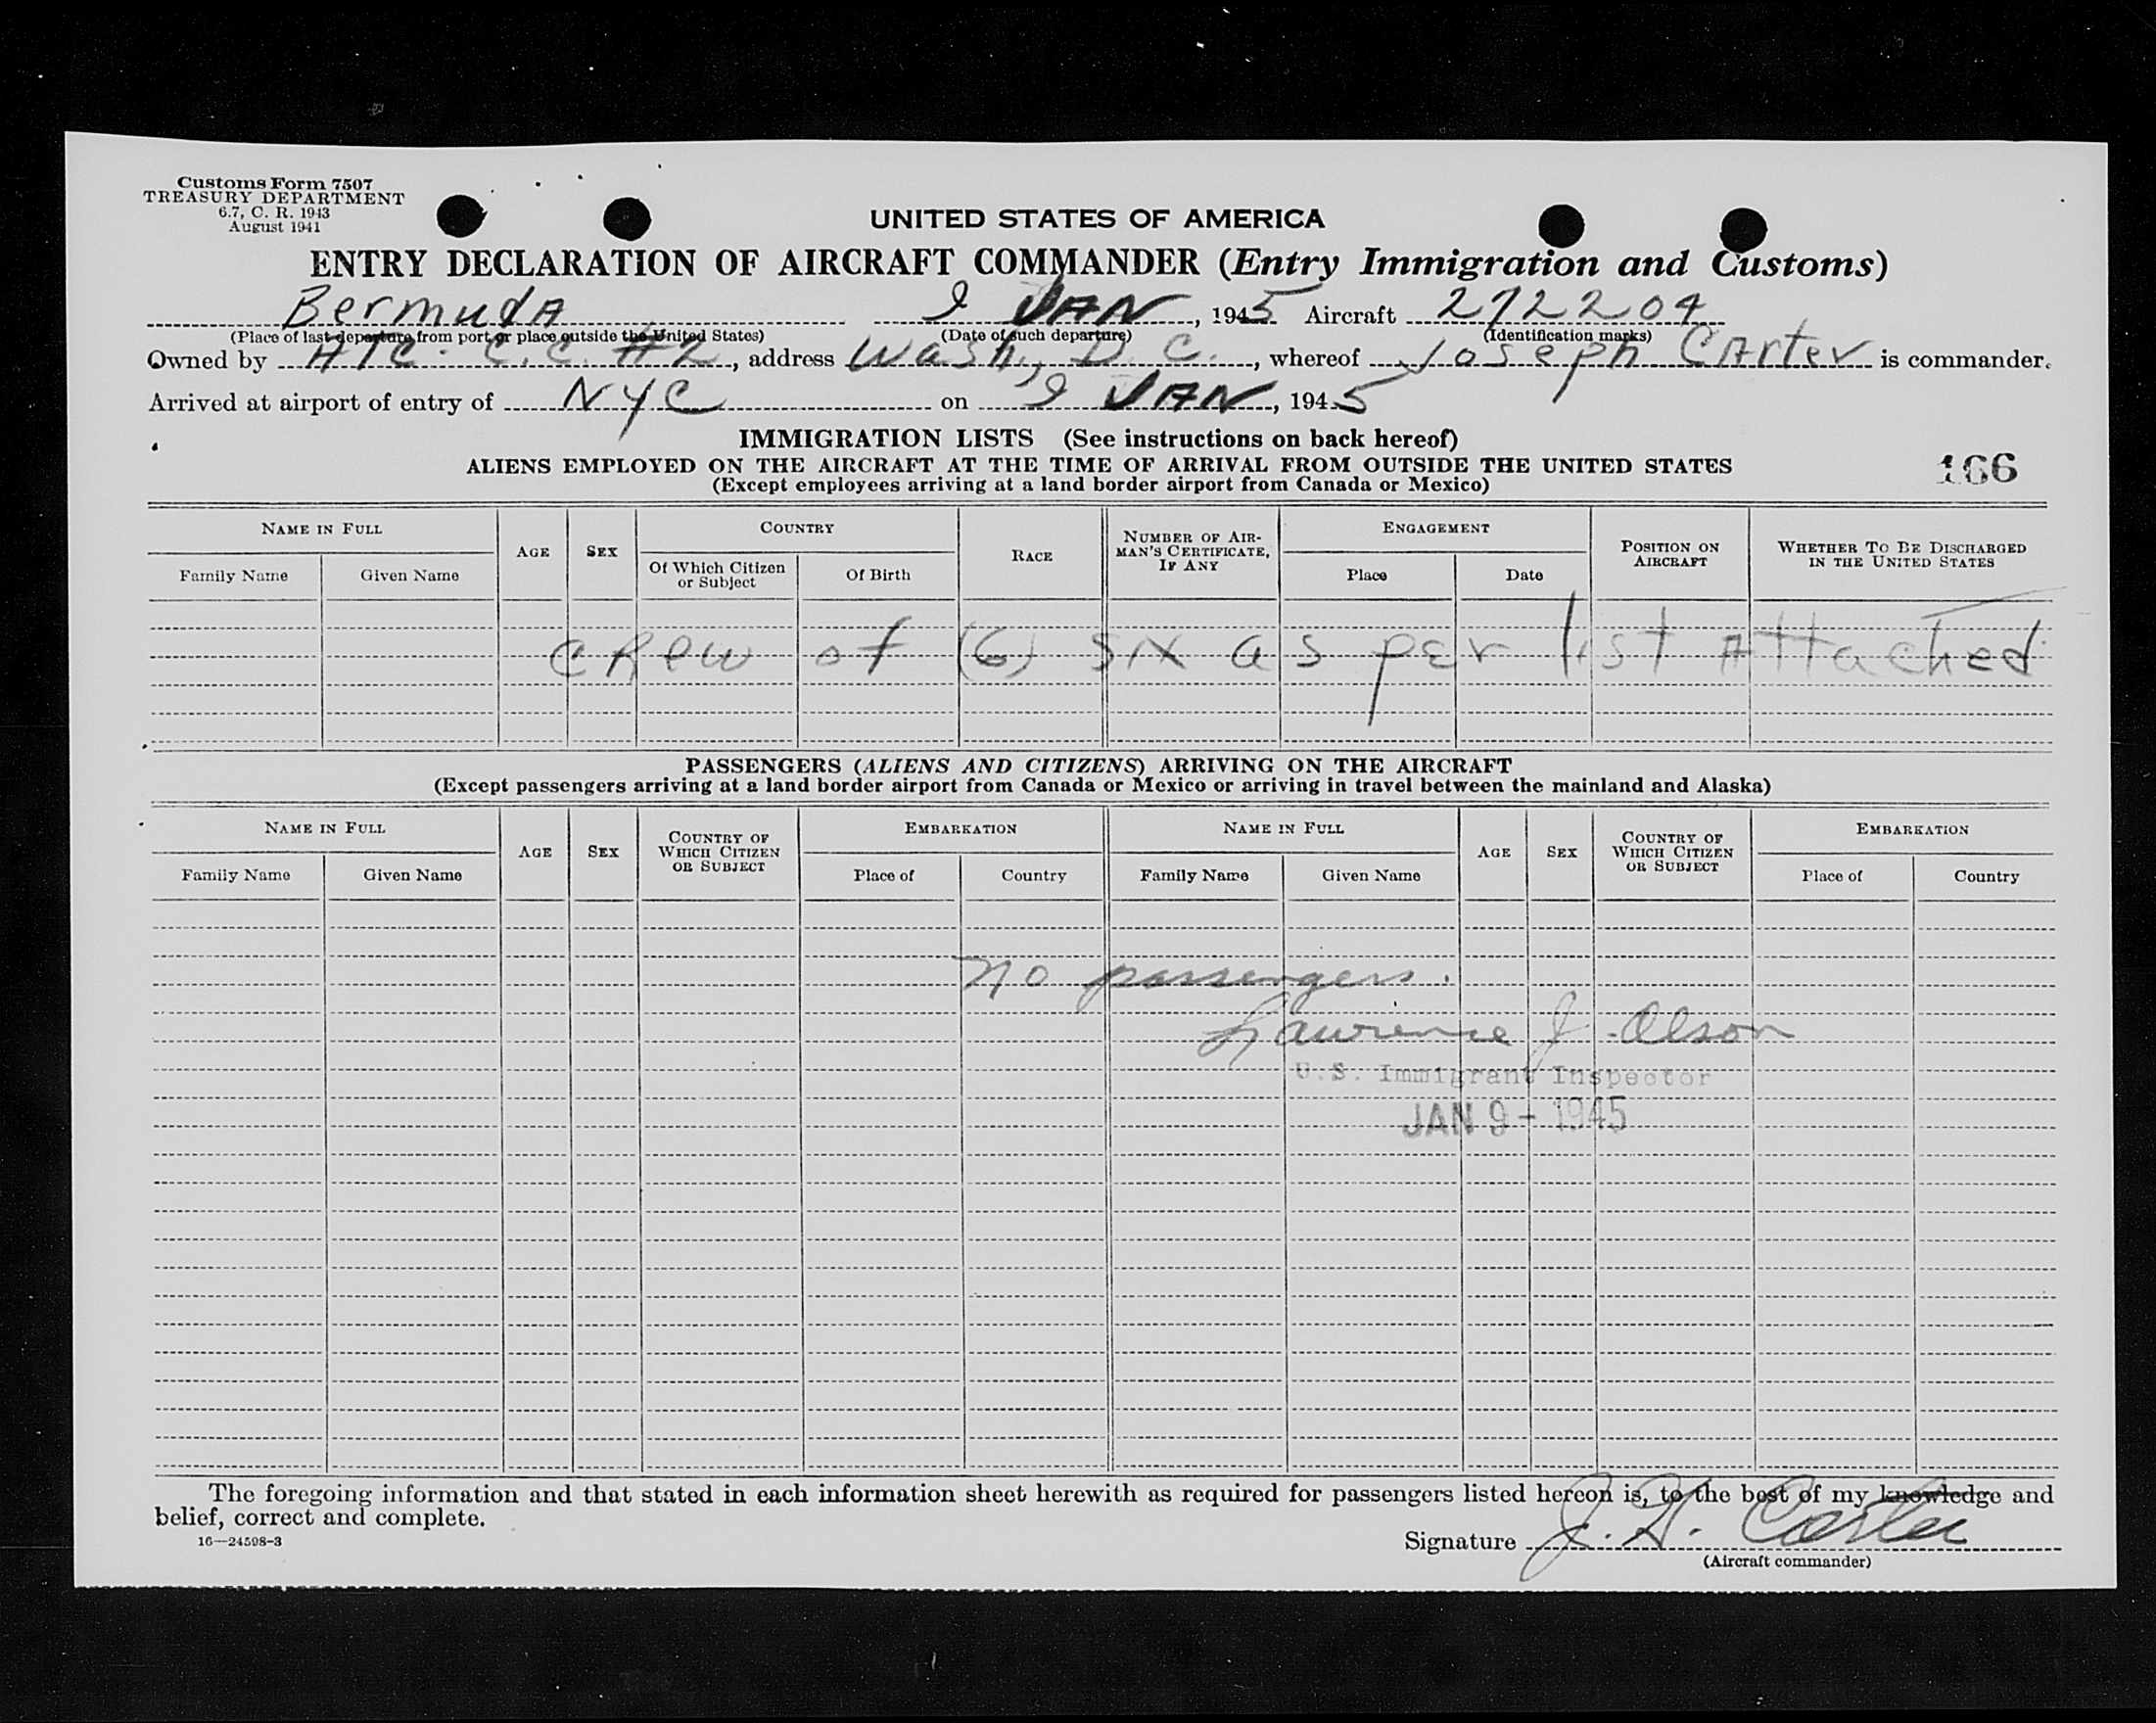 Customs Form 7507
TREASURY DEPARTMENT
6.7, C. R. 1943
August 1941
UNITED STATES OF AMERICA
ENTRY DECLARATION OF AIRCRAFT COMMANDER (Entry Immigration and Customs)
Bermuda 9 JAN, 1945 Aircraft 272204
(Place of last departure from port or place outside the United States) (Date of such departure) (Identification marks)
Owned by ATC. C.C. #2, address Wash., D.C., whereof Joseph Carter is commander.
Arrived at airport of entry of NYC on 9 JAN, 1945
IMMIGRATION LISTS (See instructions on back hereof)
ALIENS EMPLOYED ON THE AIRCRAFT AT THE TIME OF ARRIVAL FROM OUTSIDE THE UNITED STATES
166
(Except employees arriving at a land border airport from Canada or Mexico)
NAME IN FULL AGE SEX COUNTRY RACE NUMBER OF AIR-MAN'S CERTIFICATE, IF ANY ENGAGEMENT POSITION ON AIRCRAFT WHETHER TO BE DISCHARGED IN THE UNITED STATES
Family Name Given Name Of Which Citizen or Subject Of Birth Place Date
Crew of (6) six as per list Attached
PASSENGERS (ALIENS AND CITIZENS) ARRIVING ON THE AIRCRAFT
(Except passengers arriving at a land border airport from Canada or Mexico or arriving in travel between the mainland and Alaska)
NAME IN FULL AGE SEX COUNTRY OF WHICH CITIZEN OR SUBJECT EMBARKATION NAME IN FULL AGE SEX COUNTRY OF WHICH CITIZEN OR SUBJECT EMBARKATION
Family Name Given Name Place of Country Family Name Given Name Place of Country
No passengers.
Lawrence J. Olson
U.S. Immigrant Inspector
JAN 9 - 1945
The foregoing information and that stated in each information sheet herewith as required for passengers listed hereon is, to the best of my knowledge and
belief, correct and complete.
16—24598-3
Signature J. H. Carter
(Aircraft commander)